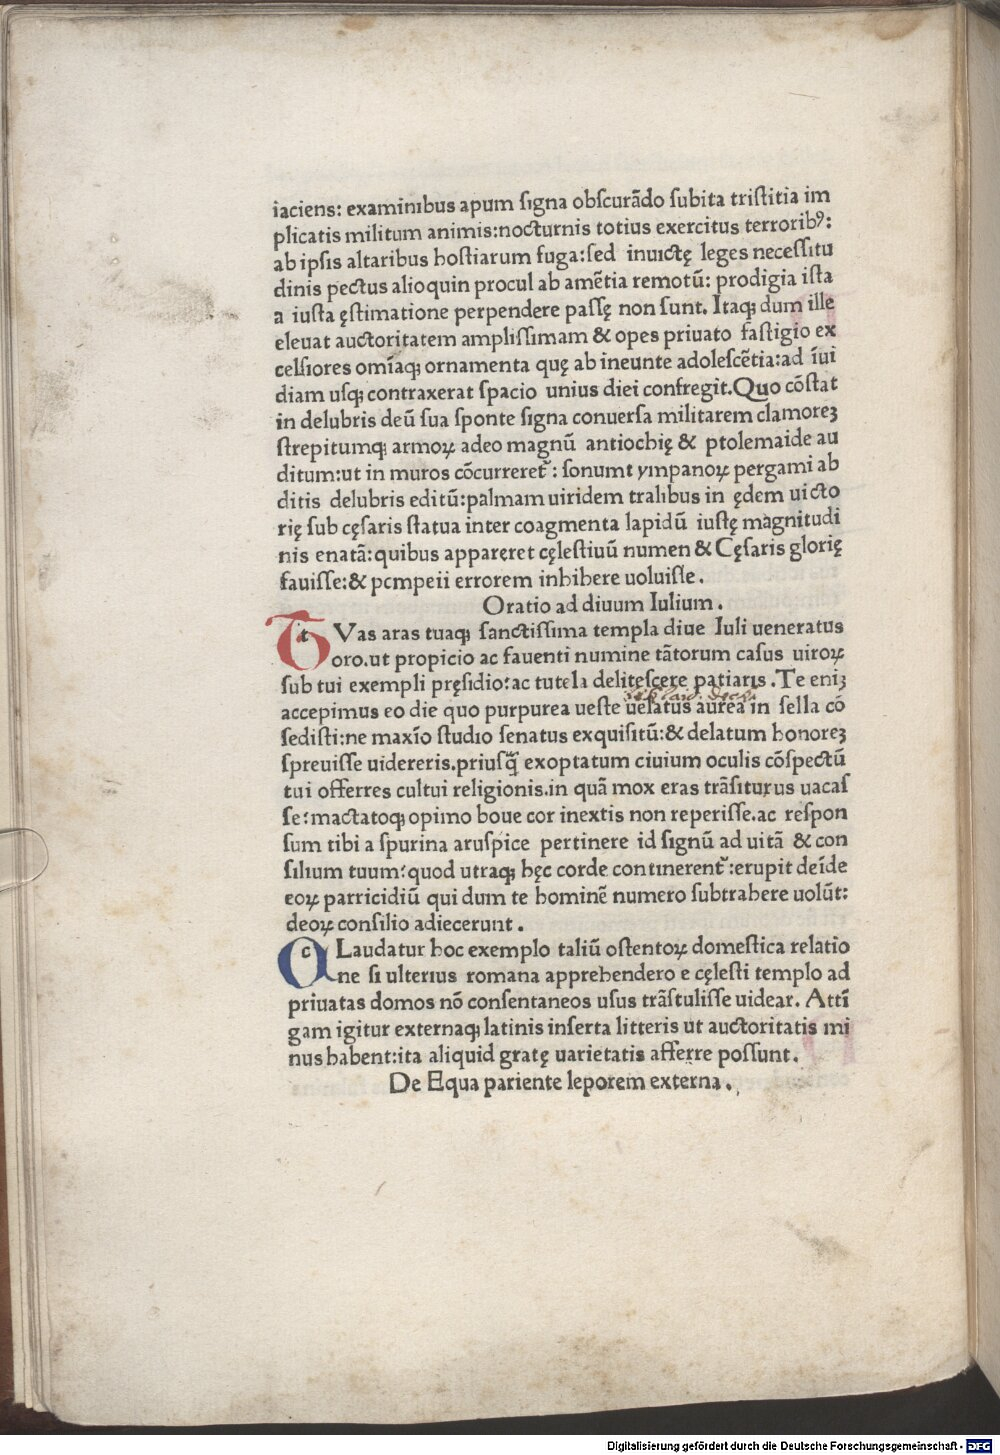 iaciens: examinibus apum signa obscurādo subita tristitia im
plicatis militum animis:nocturnis totius exercitus terrorib⁹:
ab ipsis altaribus hostiarum fuga:sed inuictę leges necessitu
dinis pectus alioquin procul ab amētia remotū: prodigia ista
a iusta ęstimatione perpendere passę non sunt. Itaqꝫ dum ille
eleuat auctoritatem amplissimam & opes priuato fastigio ex
celsiores omīaqꝫ ornamenta quę ab ineunte adolescētia:ad īui
diam usqꝫ contraxerat spacio unius diei confregit.Quo cōstat
in delubris deū sua sponte signa conuersa militarem clamoreꝫ
strepitumqꝫ armoꝝ adeo magnū antiochię & ptolemaide au
ditum:ut in muros cōcurreret᷑: sonumt ympanoꝝ pergami ab
ditis delubris editū:palmam uiridem tralibus in ędem uicto
rię sub cęsaris statua inter coagmenta lapidū iustę magnitudi
nis enatā:quibus appareret cęlestiuū numen & Cęsaris glorię
fauisse:& pcmpeii errorem inhibere uoluisse.
Oratio ad diuum Iulium.
TtVas aras tuaqꝫ sanctissima templa diue Iuli ueneratus
oro.ut propicio ac fauenti numine tātorum casus uiroꝝ
sub tui exempli pręsidio:ac tutela delitescere patiaris .Te eniꝫ
accepimus eo die quo purpurea ueste uelatus aurea in sella cō
sedisti:ne maxīo studio senatus exquisitū:& delatum honoreꝫ
spreuisse uidereris.priusq̄ exoptatum ciuium oculis cōspectū
tui offerres cultui religionis.in quā mox eras trāsiturus uacas
se:mactatoqꝫ opimo boue cor inextis non reperisse.ac respon
sum tibi a spurina aruspice pertinere id signū ad uitā & con
silium tuum:quod utraqꝫ hęc corde continerent᷑:erupit deīde
eoꝝ parricidiū qui dum te hominē numero subtrahere uolūt:
deoꝝ consilio adiecerunt.
CcLaudatur hoc exemplo taliū ostentoꝝ domestica relatio
ne si ulterius romana apprehendero e cęlesti templo ad
priuatas domos nō consentaneos usus trāstulisse uidear. Attī
gam igitur externaqꝫ latinis inserta litteris ut auctoritatis mi
nus habent:ita aliquid gratę uarietatis afferre possunt.
De Equa pariente leporem externa.
Digitalisierung gefördert durch die Deutsche Forschungsgemeinschaft - DFG